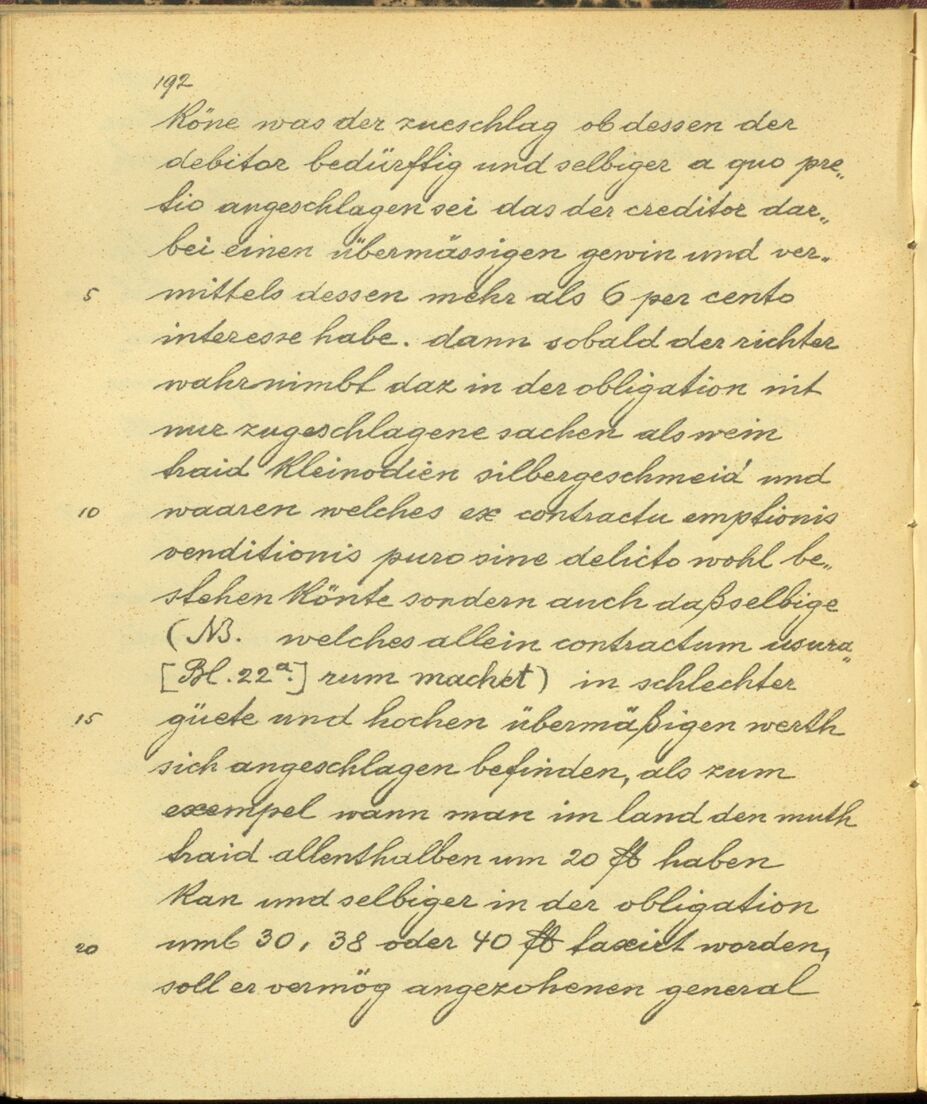 192
köne was der zueschlag ob dessen der
debitor bedürfftig und selbiger a quo pre„
tio angeschlagen sei das der creditor dar„
bei einen übermässigen gewin und ver„
5 mittels dessen mehr als 6 per cento
interesse habe. dann sobald der richter
wahrnimbt daz in der obligation nit
nur zugeschlagene sachen als wein
traid kleinodien silbergeschmeid und
10 waaren welches ex contractu emptionis
venditionis puro sine delicto wohl be„
stehen könte sondern auch daß selbige
(NB. welches allein contractum usura„
[Bl. 22a.] rum machet) in schlechter
15 güete und hochen übermäßigen werth
sich angeschlagen befinden, als zum
exempel wann man im land den muth
traid allenthalben um 20 ft haben
kan und selbiger in der obligation
20 umb 30, 38 oder 40 ft taxirt worden,
soll er vermög angezohenen general